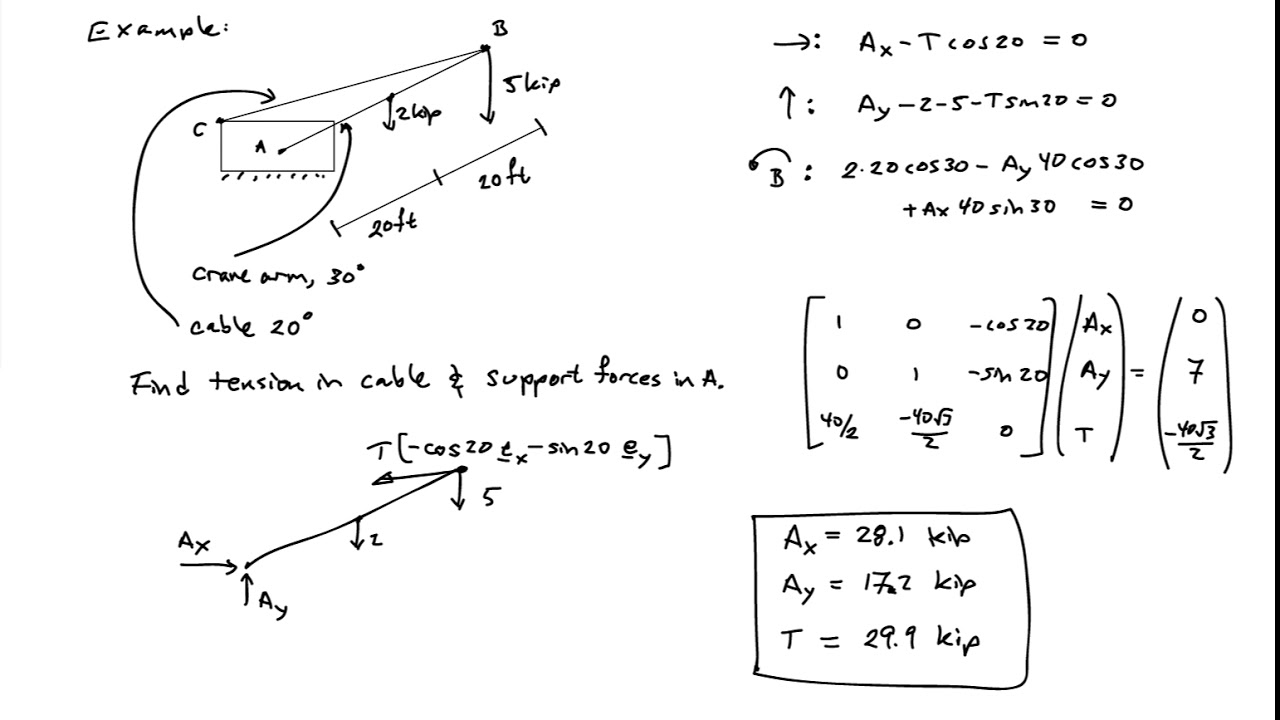 Example:
B
5 kip
2 kip
C
A
20 ft
20 ft
crane arm, 30°
cable 20°
Find tension in cable & support forces in A.
T[-cos20 e_x - sin20 e_y]
5
2
Ax
Ay
→: Ax - T cos20 = 0
↑: Ay - 2 - 5 - T sin20 = 0
B: 2·20 cos30 - Ay 40 cos30
+ Ax 40 sin 30 = 0
1 0 -cos20 Ax 0
0 1 -sin 20 Ay = 7
40/2 -40√3/2 0 T -40√3/2
Ax = 28.1 kip
Ay = 17.2 kip
T = 29.9 kip